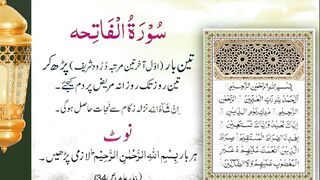 سُوْرَۃُ الْفَاتِحَہ
تین بار (اوّل آخر تین مرتبہ دُرُود شریف) پڑھ کر
تین روز تک روزانہ مریض پر دم کیجئے۔
اِنْ شَآءَاللہ نزلہ زکام سے نجات حاصل ہوگی۔
نوٹ
ہر بار بِسْمِ اللہِ الرَّحْمٰنِ الرَّحِیْمِ لازمی پڑھیں۔
بسم الله الرحمن الرحيم
الحمد لله رب العالمين الرحمن
الرحيم مالك يوم الدين
إياك نعبد وإياك نستعين